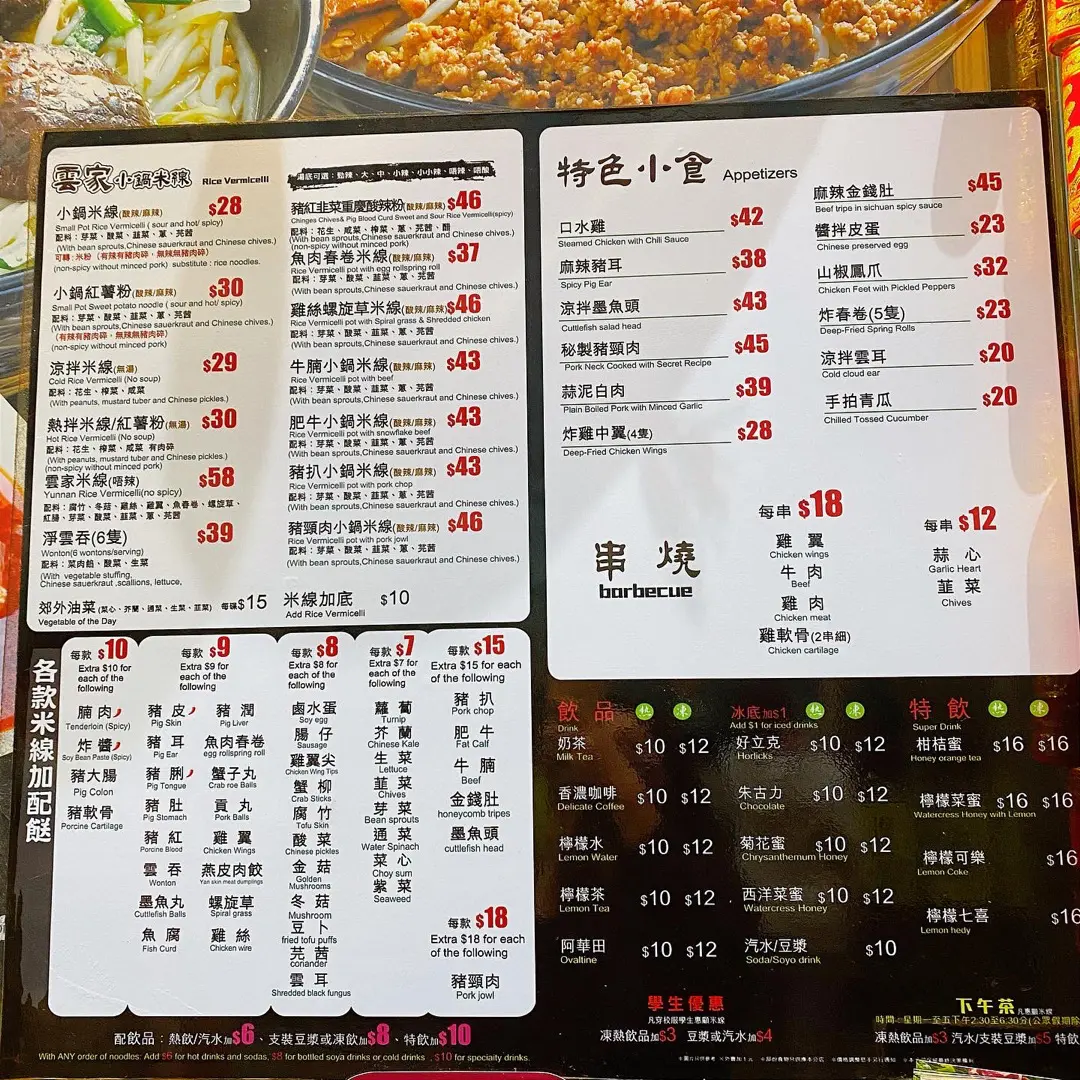 雲家小鍋米線 Rice Vermicelli
湯底可選：勁辣、大、中、小辣、小小辣、唔辣、唔酸
小鍋米線(酸辣/麻辣) $28
Small Pot Rice Vermicelli ( sour and hot/ spicy)
配料：芽菜、酸菜、韮菜、蔥、芫茜
(With bean sprouts,Chinese sauerkraut and Chinese chives.)
可轉：米粉（有辣有豬肉碎，無辣無豬肉碎）
(non-spicy without minced pork) substitute : rice noodles.
小鍋紅薯粉(酸辣/麻辣) $30
Small Pot Sweet potato noodle ( sour and hot/ spicy)
配料：芽菜、酸菜、韮菜、蔥、芫茜
(With bean sprouts,Chinese sauerkraut and Chinese chives.)
（有辣有豬肉碎，無辣無豬肉碎）
(non-spicy without minced pork)
涼拌米線(無湯) $29
Cold Rice Vermicelli (No soup)
配料：花生、榨菜、咸菜
(With peanuts, mustard tuber and Chinese pickles.)
熱拌米線/紅薯粉(無湯) $30
Hot Rice Vermicelli (No soup)
配料：花生、榨菜、咸菜 有肉碎
(With peanuts, mustard tuber and Chinese pickles.)
(non-spicy without minced pork)
雲家米線(唔辣) $58
Yunnan Rice Vermicelli(no spicy)
配料：腐竹、冬菇、雞絲、雞翼、魚春卷、螺旋草、
紅腸、芽菜、酸菜、韮菜、蔥、芫茜
淨雲吞(6隻) $39
Wonton(6 wontons/serving)
配料：菜肉餡、酸菜、生菜
(With vegetable stuffing,
Chinese sauerkraut ,scallions, lettuce,
郊外油菜(菜心、芥蘭、通菜、生菜、韮菜) 每碟$15
Vegetable of the Day
豬紅韭菜重慶酸辣粉(酸辣/麻辣) $46
Chinges Chives& Pig Blood Curd Sweet and Sour Rice Vermicelli(spicy)
配料：花生、咸菜、芽菜、蔥、芫茜、醋
(With bean sprouts,Chinese sauerkraut and Chinese chives.)
(non-spicy without minced pork)
魚肉春卷米線(酸辣/麻辣) $37
Rice Vermicelli pot with egg rollspring roll
配料：芽菜、酸菜、韮菜、蔥、芫茜
(With bean sprouts,Chinese sauerkraut and Chinese chives.)
雞絲螺旋草米線(酸辣/麻辣) $46
Rice Vermicelli pot with Spiral grass & Shredded chicken
配料：芽菜、酸菜、韮菜、蔥、芫茜
(With bean sprouts,Chinese sauerkraut and Chinese chives.)
牛腩小鍋米線(酸辣/麻辣) $43
Rice Vermicelli pot with beef
配料：芽菜、酸菜、韮菜、蔥、芫茜
(With bean sprouts,Chinese sauerkraut and Chinese chives.)
肥牛小鍋米線(酸辣/麻辣) $43
Rice Vermicelli pot with snowflake beef
配料：芽菜、酸菜、韮菜、蔥、芫茜
(With bean sprouts,Chinese sauerkraut and Chinese chives.)
豬扒小鍋米線(酸辣/麻辣) $43
Rice Vermicelli pot with pork chop
配料：芽菜、酸菜、韮菜、蔥、芫茜
(With bean sprouts,Chinese sauerkraut and Chinese chives.)
豬頸肉小鍋米線(酸辣/麻辣) $46
Rice Vermicelli pot with pork jowl
配料：芽菜、酸菜、韮菜、蔥、芫茜
(With bean sprouts,Chinese sauerkraut and Chinese chives.)
米線加底 $10
Add Rice Vermicelli
特色小食 Appetizers
口水雞 $42
Steamed Chicken with Chili Sauce
麻辣豬耳 $38
Spicy Pig Ear
涼拌墨魚頭 $43
Cuttlefish salad head
秘製豬頸肉 $45
Pork Neck Cooked with Secret Recipe
蒜泥白肉 $39
Plain Boiled Pork with Minced Garlic
炸雞中翼(4隻) $28
Deep-Fried Chicken Wings
麻辣金錢肚 $45
Beef tripe in sichuan spicy sauce
醬拌皮蛋 $23
Chinese preserved egg
山椒鳳爪 $32
Chicken Feet with Pickled Peppers
炸春卷(5隻) $23
Deep-Fried Spring Rolls
涼拌雲耳 $20
Cold cloud ear
手拍青瓜 $20
Chilled Tossed Cucumber
串燒
barbecue
每串 $18
雞翼
Chicken wings
牛肉
Beef
雞肉
Chicken meat
雞軟骨(2串細)
Chicken cartilage
每串 $12
蒜心
Garlic Heart
韮菜
Chives
各款米線加配餸
每款 $10
Extra $10 for
each of the
following
腩肉
Tenderloin (Spicy)
炸醬
Soy Bean Paste (Spicy)
豬大腸
Pig Colon
豬軟骨
Porcine Cartilage
每款 $9
Extra $9 for
each of the
following
豬皮
Pig Skin
豬耳
Pig Ear
豬脷
Pig Tongue
豬肚
Pig Stomach
豬紅
Porcine Blood
雲吞
Wonton
墨魚丸
Cuttlefish Balls
魚腐
Fish Curd
豬潤
Pig Liver
魚肉春卷
egg rollspring roll
蟹子丸
Crab roe Balls
貢丸
Pork Balls
雞翼
Chicken Wings
燕皮肉餃
Yan skin meat dumplings
螺旋草
Spiral grass
雞絲
Chicken wire
每款 $8
Extra $8 for
each of the
following
鹵水蛋
Soy egg
腸仔
Sausage
雞翼尖
Chicken Wing Tips
蟹柳
Crab Sticks
腐竹
Tofu Skin
酸菜
Chinese pickles
金菇
Golden
Mushrooms
冬菇
Mushroom
豆卜
fried tofu puffs
芫茜
coriander
雲耳
Shredded black fungus
每款 $7
Extra $7 for
each of the
following
蘿蔔
Turnip
芥蘭
Chinese Kale
生菜
Lettuce
韮菜
Chives
芽菜
Bean sprouts
通菜
Water Spinach
菜心
Choy sum
紫菜
Seaweed
每款 $15
Extra $15 for each
of the following
豬扒
Pork chop
肥牛
Fat Calf
牛腩
Beef
金錢肚
honeycomb tripes
墨魚頭
cuttlefish head
每款 $18
Extra $18 for each
of the following
豬頸肉
Pork jowl
配飲品：熱飲/汽水加$6、支裝豆漿或凍飲加$8、特飲加$10
With ANY order of noodles: Add $6 for hot drinks and sodas, $8 for bottled soya drinks or cold drinks , $10 for specialty drinks.
飲品 熱 凍
Drink
奶茶 $10 $12
Milk Tea
香濃咖啡 $10 $12
Delicate Coffee
檸檬水 $10 $12
Lemon Water
檸檬茶 $10 $12
Lemon Tea
阿華田 $10 $12
Ovaltine
冰底加$1 熱 凍
Add $1 for iced drinks
好立克 $10 $12
Horlicks
朱古力 $10 $12
Chocolate
菊花蜜 $10 $12
Chrysanthemum Honey
西洋菜蜜 $10 $12
Watercress Honey
汽水/豆漿 $10
Soda/Soyo drink
特飲 熱 凍
Super Drink
柑桔蜜 $16 $16
Honey orange tea
檸檬菜蜜 $16 $16
Watercress Honey with Lemon
檸檬可樂 $16
Lemon Coke
檸檬七喜 $16
Lemon hedy
學生優惠
凡穿校服學生惠顧米線
凍熱飲品加$3 豆漿或汽水加$4
下午茶 凡惠顧米線
時間：星期一至五下午2:30至6:30分(公眾假期除
凍熱飲品加$3 汽水/支裝豆漿加$5 特飲